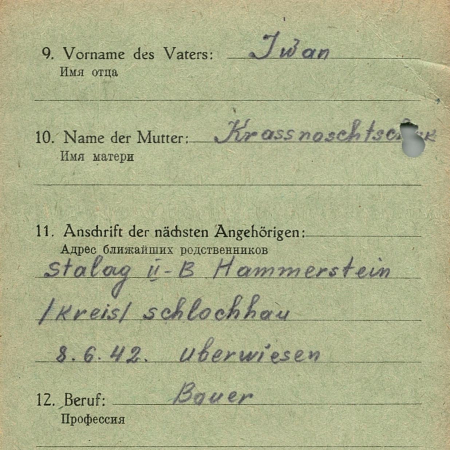 9. Vorname des Vaters: Iwan
Имя отца
10. Name der Mutter:
Имя матери
11. Anschrift der nächsten Angehörigen:
Адрес ближайших родственников
Stalag II-B Hammerstein
/Kreis/ Schlochhau
8.6.42. Uberwiesen
12. Beruf: Bauer
Профессия